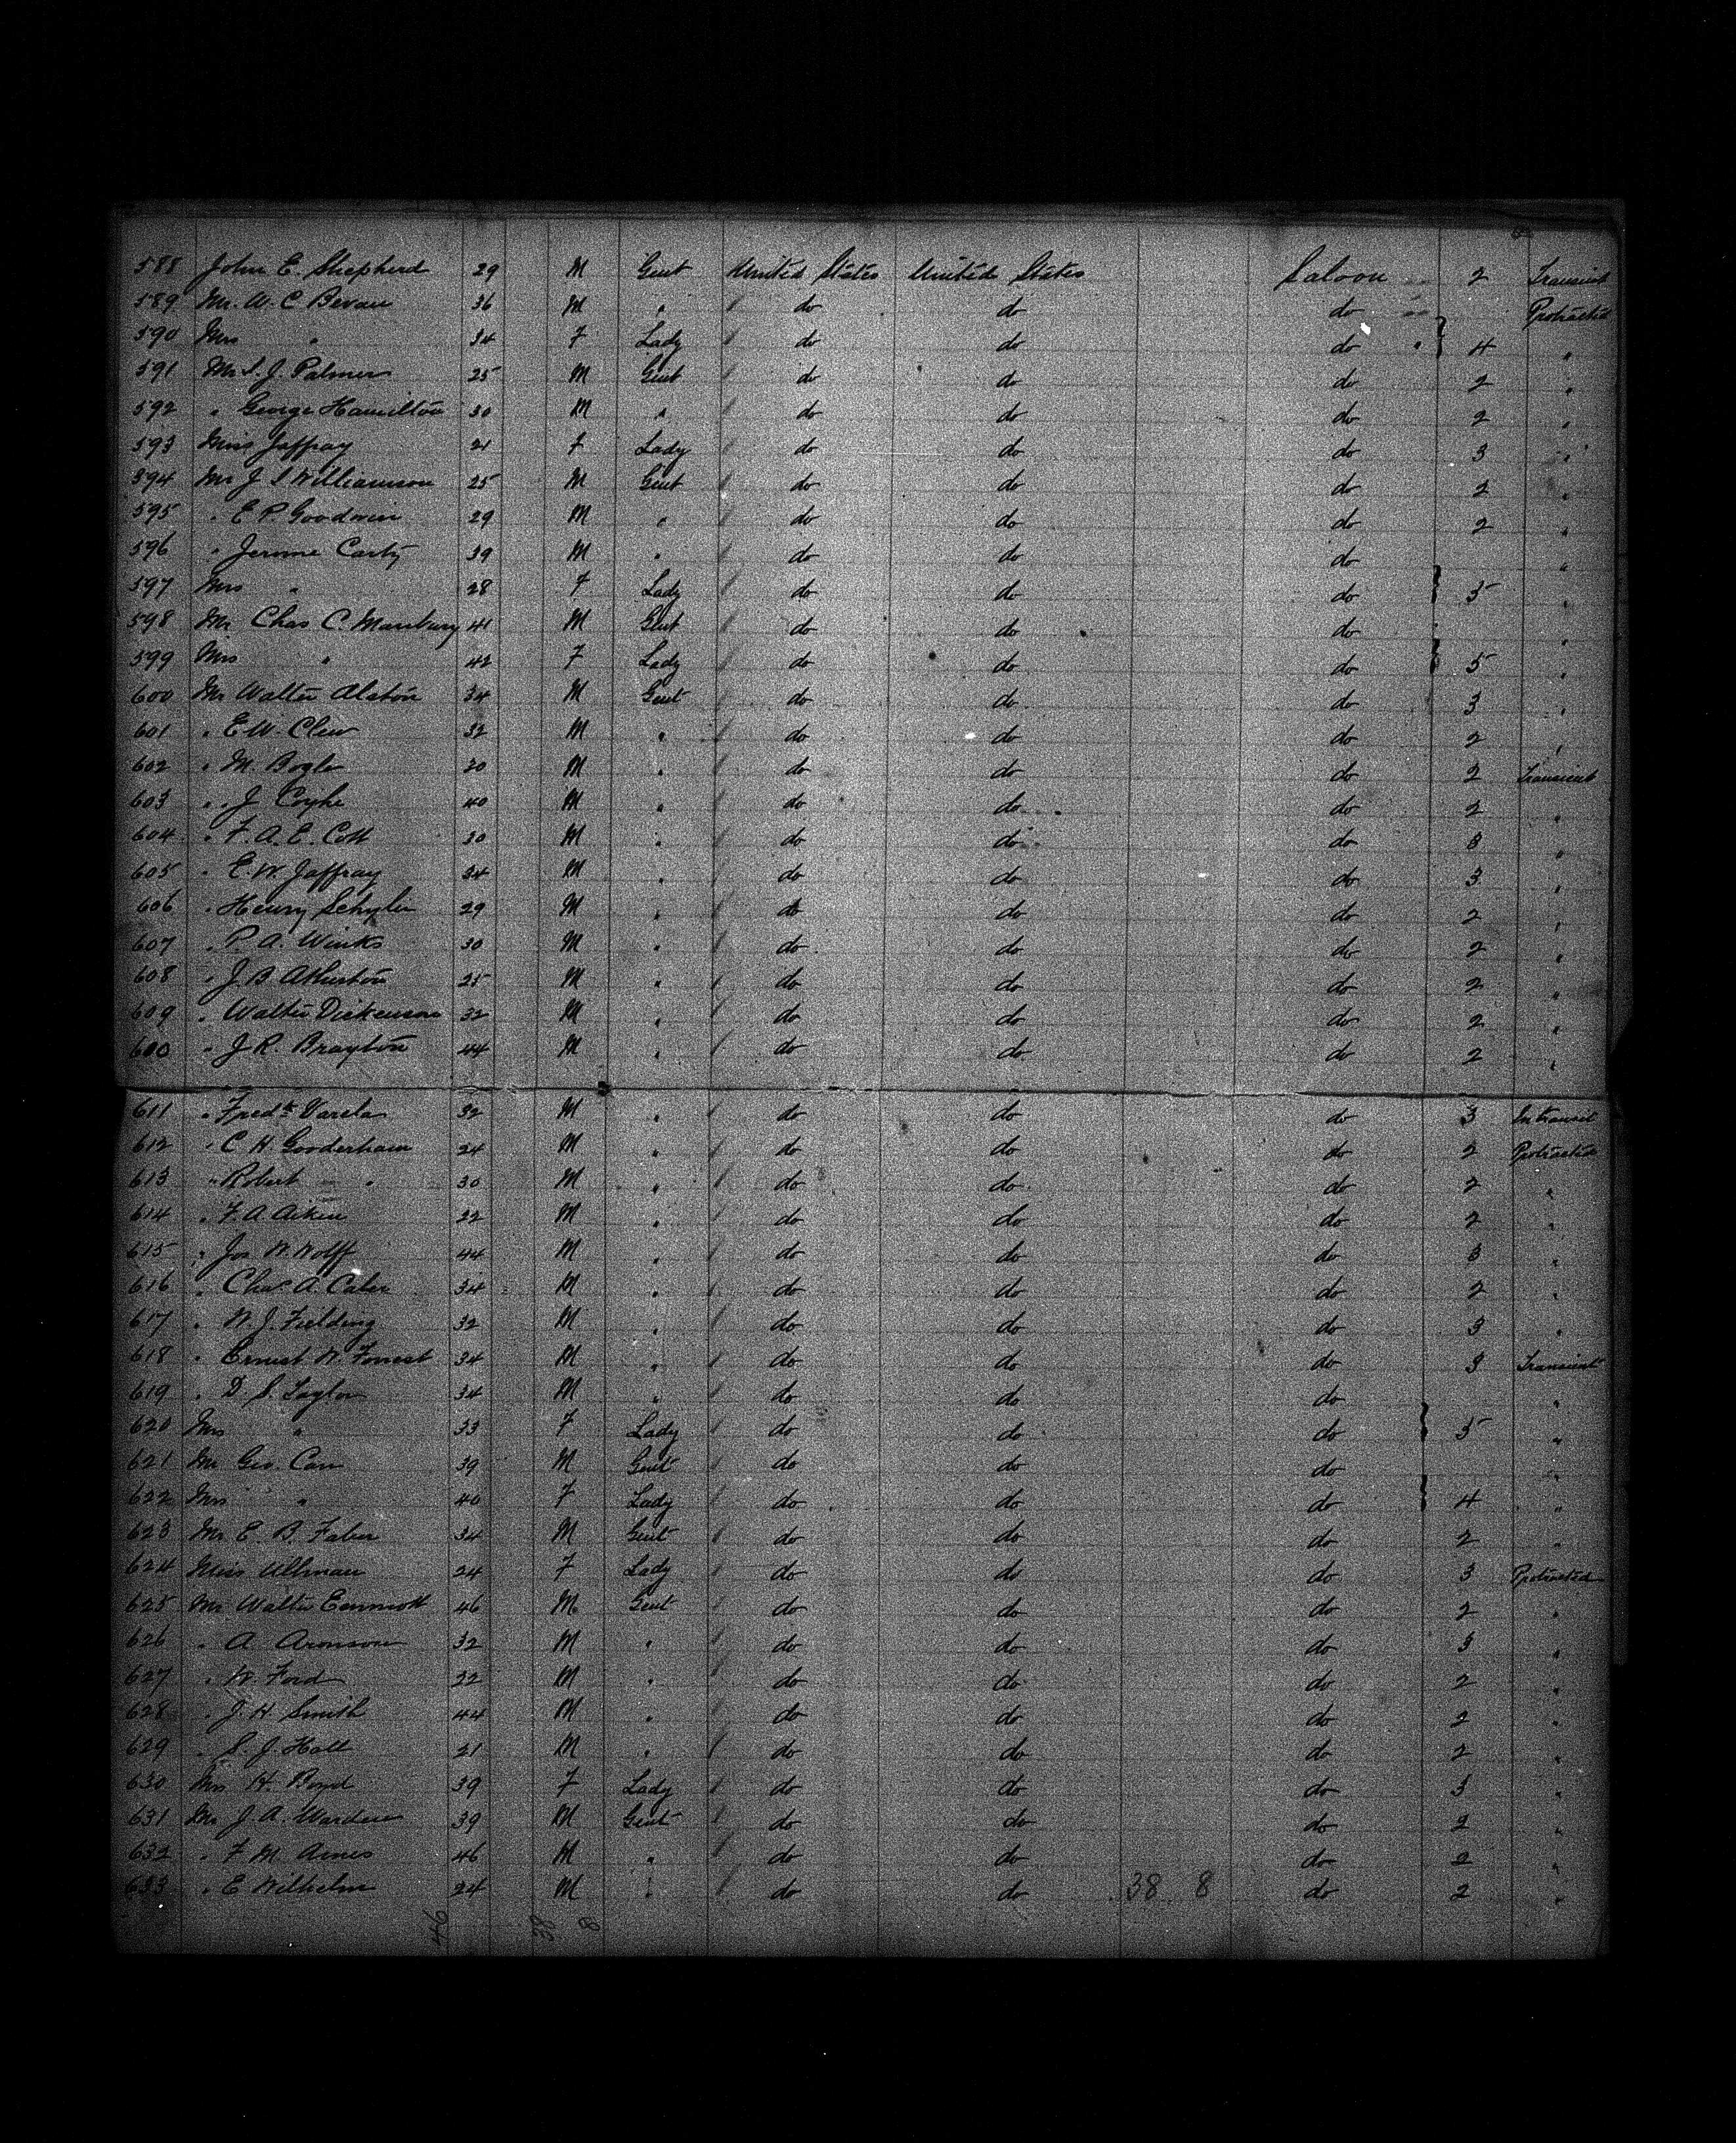 588 John E. Shepherd 29 M Gent United States United States Saloon 2 Transient
589 Mr. W. C. Bevan 36 M " do do do Protracted
590 Mrs " 34 F Lady do do do 4 "
591 Mr S. J. Palmer 25 M Gent do do do 2 "
592 " George Hamilton 30 M " do do do 2 "
593 Miss Jaffray 21 F Lady do do do 3 "
594 Mr J S Williamson 25 M Gent do do do 2 "
595 " E P. Goodwin 29 M " do do do 2 "
596 " Jerome Carty 39 M " do do do "
597 Mrs " 28 F Lady do do do 5 "
598 Mr Chas C. Manbury 41 M Gent do do do "
599 Mrs " 42 F Lady do do do 5 "
600 Mr Walter Alston 34 M Gent do do do 3 "
601 " E W. Clew 32 M " do do do 2 "
602 " M. Bogle 30 M " do do do 2 Transient
603 " J 40 M " do do do 2 "
604 " F. A. E. Cott 30 M " do do do 3 "
605 " E. W. Jaffray 34 M " do do do 3 "
606 " Henry Schyler 29 M " do do do 2 "
607 " P. A. Winks 30 M " do do do 2 "
608 " J. B Atherton 25 M " do do do 2 "
609 " Walter Dickenson 32 M " do do do 2 "
600 " J. R. Brayton 44 M " do do do 2 "
611 " Fredk Varela 32 M " do do do 3 In transit
612 " C H. Gooderham 24 M " do do do 2 Protracted
613 " Robert " 30 M " do do do 2 "
614 " F. A. Aiken 22 M " do do do 2 "
615 " Jos. W. Wolff 44 M " do do do 3 "
616 " Chas. A. 34 M " do do do 2 "
617 " W. J. Fielding 32 M " do do do 3 "
618 " Ernest W. Forrest 34 M " do do do 3 Transient
619 " D. S. Taylor 34 M " do do do "
620 Mrs " 33 F Lady do do do 5 "
621 Mr Geo. Carr 39 M Gent do do do "
622 Mrs " 40 F Lady do do do 4 "
623 Mr E. B. Faber 34 M Gent do do do 2 "
624 Miss Ullman 24 F Lady do do do 3 Protracted
625 Mr Walter Emmott 46 M Gent do do do 2 "
626 " A Aronson 32 M " do do do 3 "
627 " W. Ford 22 M " do do do 2 "
628 " J. H. Smith 44 M " do do do 2 "
629 " S. J. Hall 21 M " do do do 2 "
630 Mrs H. Boyd 39 F Lady do do do 3 "
631 Mr J. A. Warden 39 M Gent do do do 2 "
632 " F M Ames 46 M " do do do 2 "
633 " E Wilhelm 24 M " do do 38 8 do 2 "
46 38 8